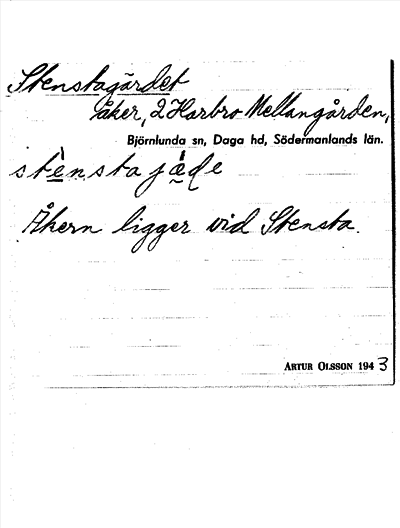 Stenstagärdet
åker, 2 Harbro Mellangården,
Björnlunda sn, Daga hd, Södermanlands län.
Åkern ligger vid Stensta.
ARTUR OLSSON 1943